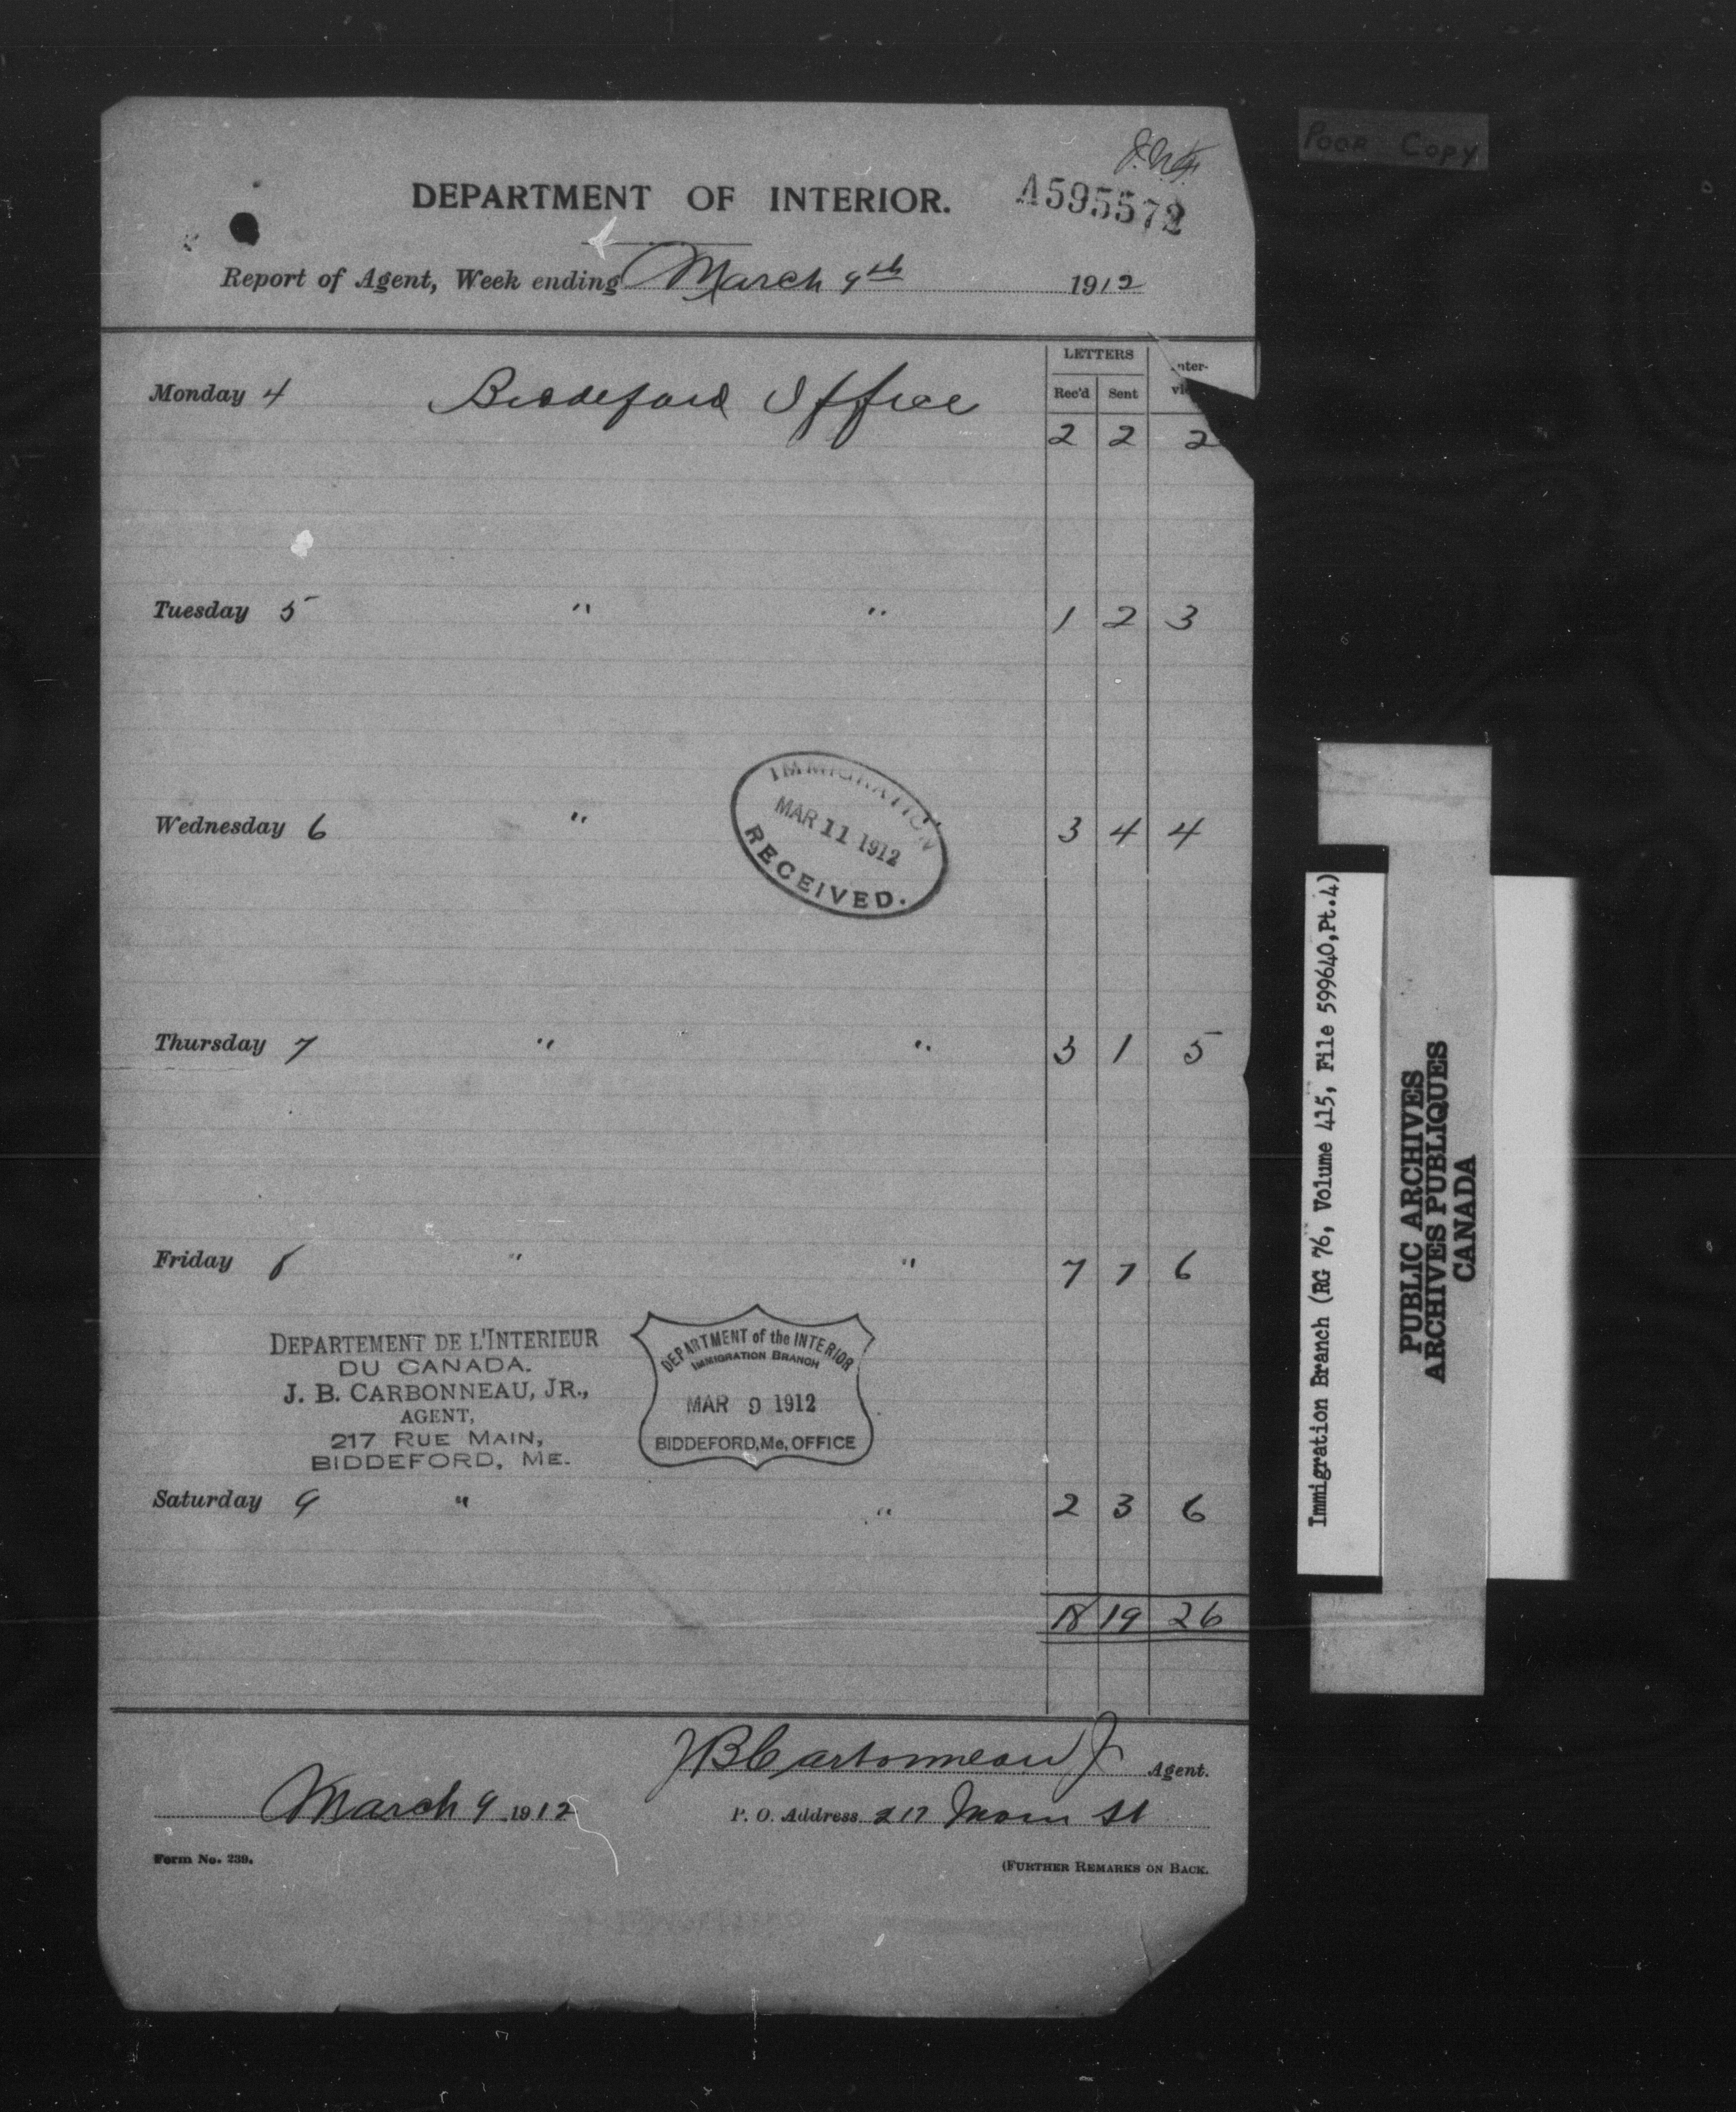 POOR COPY
J.N.K.
DEPARTMENT OF INTERIOR.
A595572
Report of Agent, Week ending March 9th 1912
LETTERS
Rec'd Sent
Monday 4 Biddeford Office
2 2 2
Tuesday 5 " " 1 2 3
Wednesday 6 " " 3 4 4
IMMIGRATION
MAR 11 1912
RECEIVED.
Thursday 7 " " 3 1 5
Friday 8 " " 7 7 6
DEPARTEMENT DE L'INTERIEUR
DU CANADA.
J. B. CARBONNEAU, JR.,
AGENT,
217 RUE MAIN,
BIDDEFORD, ME.
DEPARTMENT of the INTERIOR
IMMIGRATION BRANCH
MAR 9 1912
BIDDEFORD, Me, OFFICE
Saturday 9 " " 2 3 6
18 19 26
J B Carbonneau Jr Agent.
March 9 1912 P. O. Address 217 Main St
Form No. 239. (FURTHER REMARKS ON BACK.
Immigration Branch (RG 76, Volume 415, File 599640,Pt.4)
PUBLIC ARCHIVES
ARCHIVES PUBLIQUES
CANADA